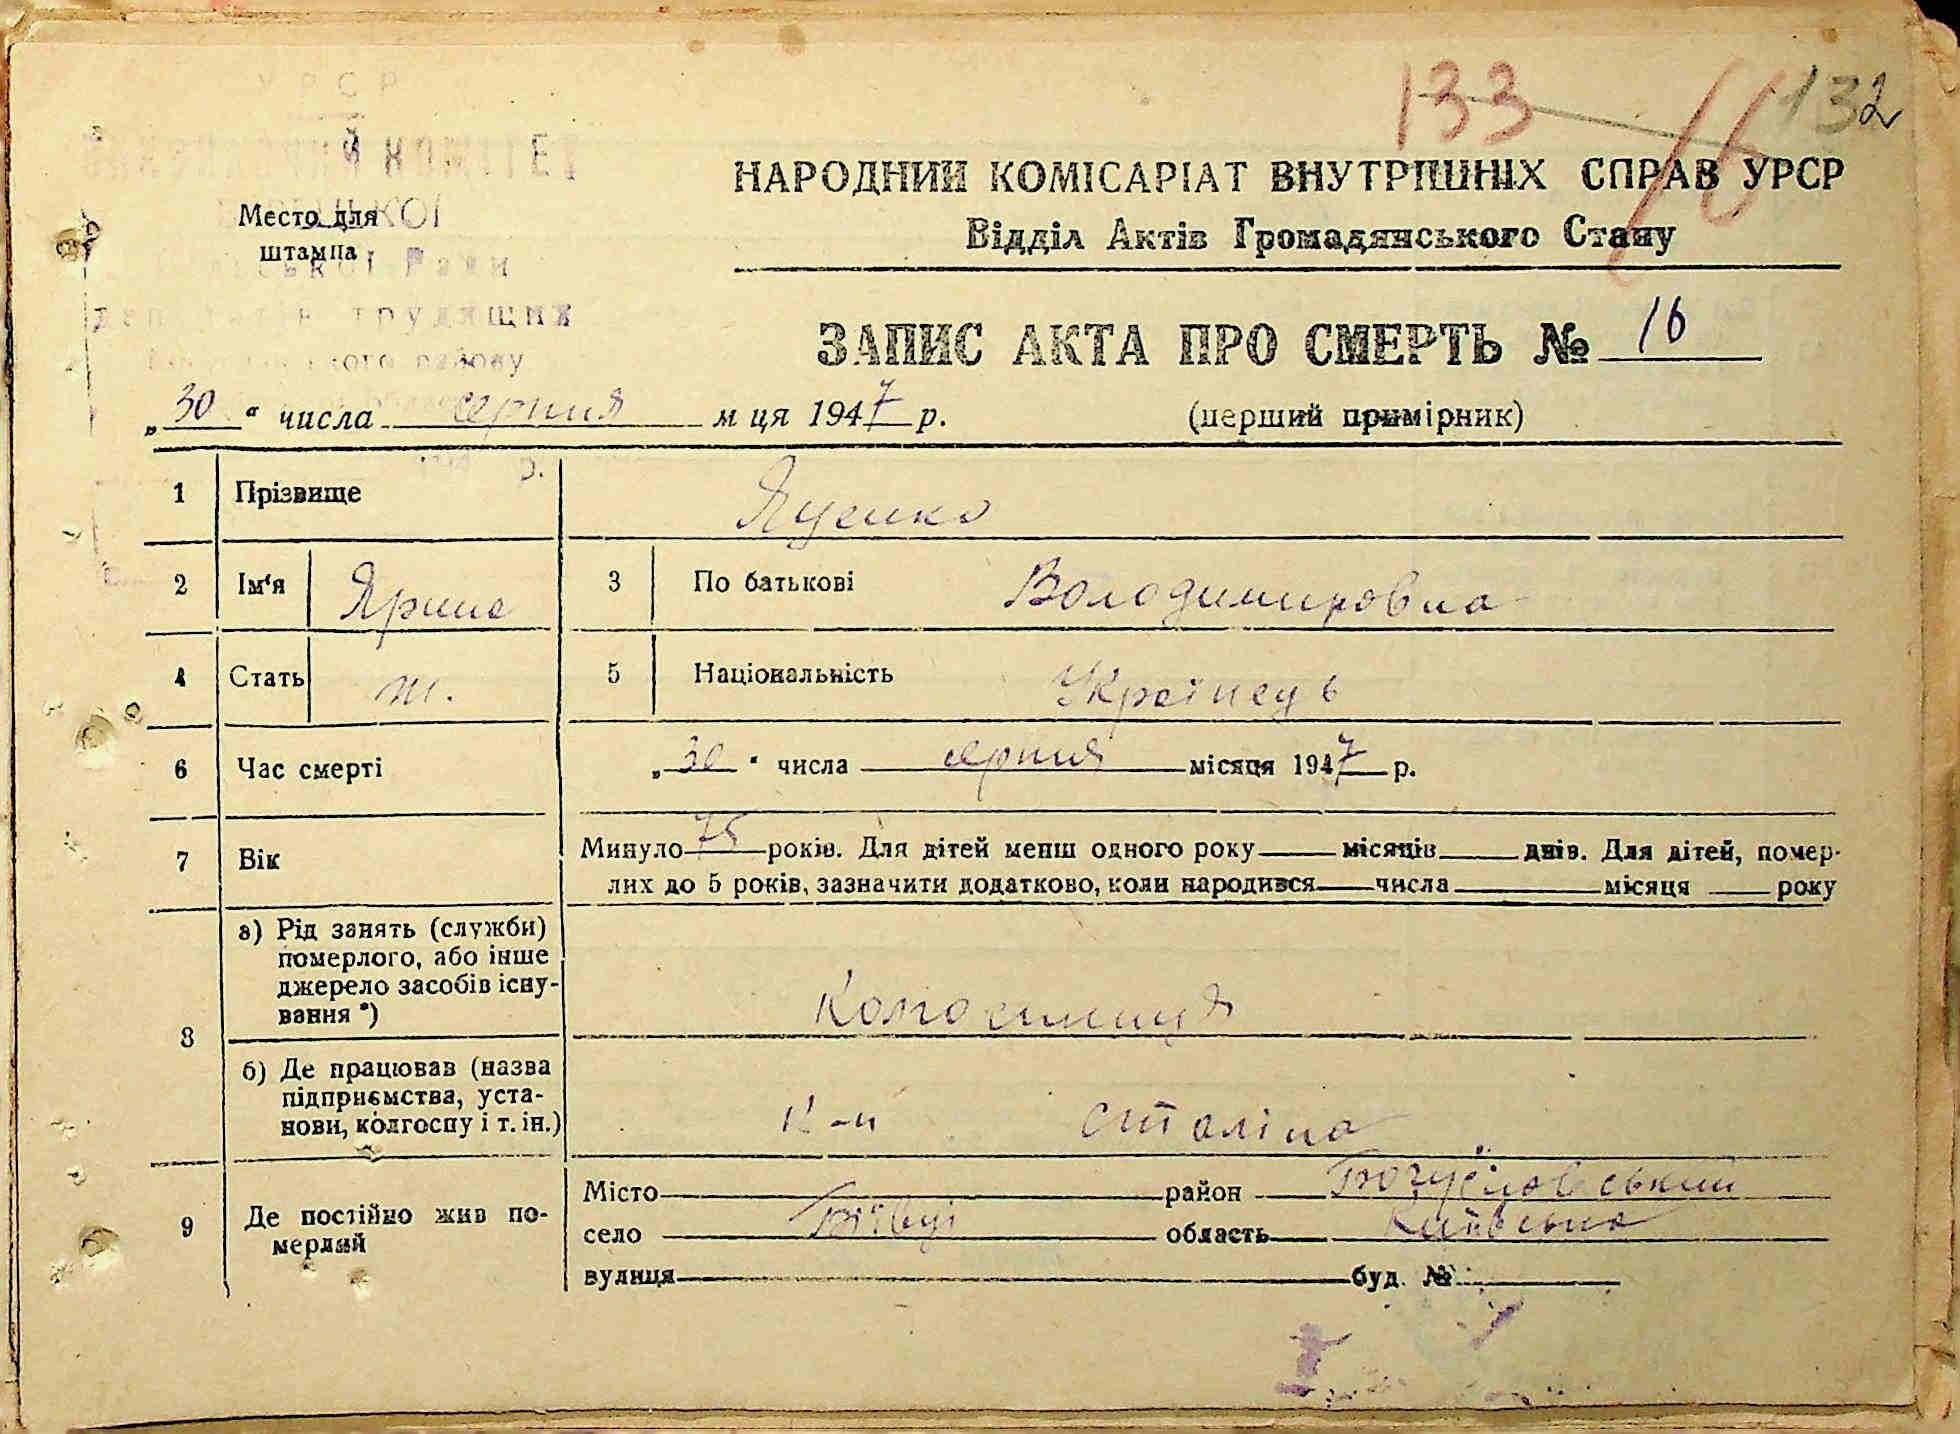 133 16 132
УРСР
КОМІТЕТ
Место для
штампа
Ради
трудящих
району
НАРОДНИЙ КОМІСАРІАТ ВНУТРІШНІХ СПРАВ УРСР
Відділ Актів Громадянського Стану
ЗАПИС АКТА ПРО СМЕРТЬ № 16
„30“ числа серпня м ця 1947 р. (перший примірник)
р.
1 Прізвище Яценко
2 Ім'я Ярина 3 По батькові Володимировна
4 Стать ж. 5 Національність Українець
6 Час смерті „30“ числа серпня місяця 1947 р.
7 Вік Минуло 75 років. Для дітей менш одного року місяців днів. Для дітей, помер-
лих до 5 років, зазначити додатково, коли народився числа місяця року
8 а) Рід занять (служби)
померлого, або інше
джерело засобів існу-
вання *) Колгоспниця
б) Де працював (назва
підприємства, уста-
нови, колгоспу і т. ін.) к-п Сталіна
9 Де постійно жив по-
мерлий
Місто район Богуславський
село Бієвці область Київська
вулиця буд. №